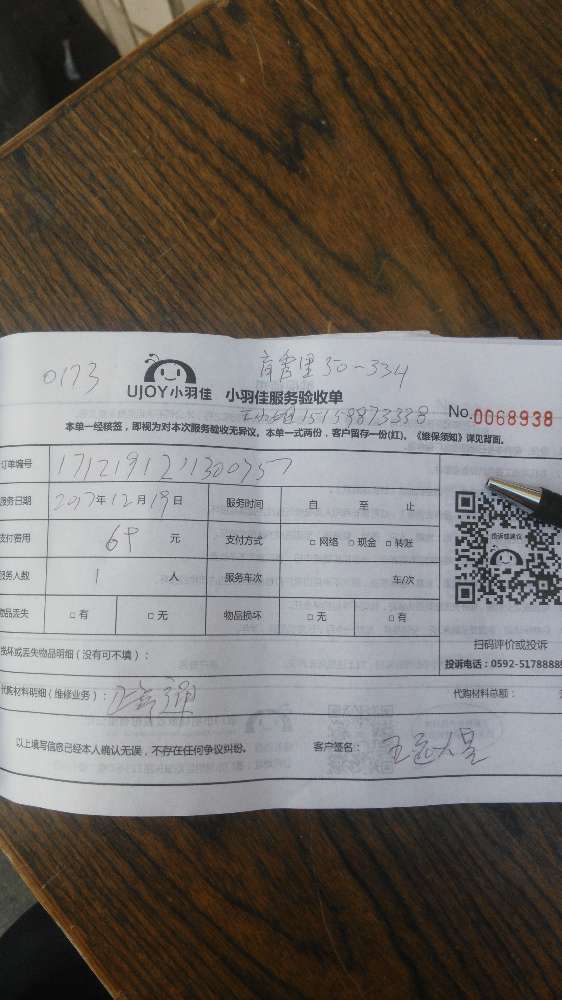 0173
UJOY小羽佳 小羽佳服务验收单
No.0068938
15159873338
本单一经核签，即视为对本次服务验收无异议。本单一式两份，客户留存一份(红)。《维保须知》详见背面。
订单编号
服务日期 2017年12月19日 服务时间 自 至 止
支付费用 69 元 支付方式 □ 网络 □ 现金 □ 转账
服务人数 1 人 服务车次 车/次
物品丢失 □ 有 □ 无 物品损坏 □ 无 □ 有
投诉或建议
扫码评价或投诉
投诉电话：0592-5178889
损坏或丢失物品明细（没有可不填）：
代购材料明细（维修业务）： 代购材料总额：
以上填写信息已经本人确认无误，不存在任何争议纠纷。 客户签名：